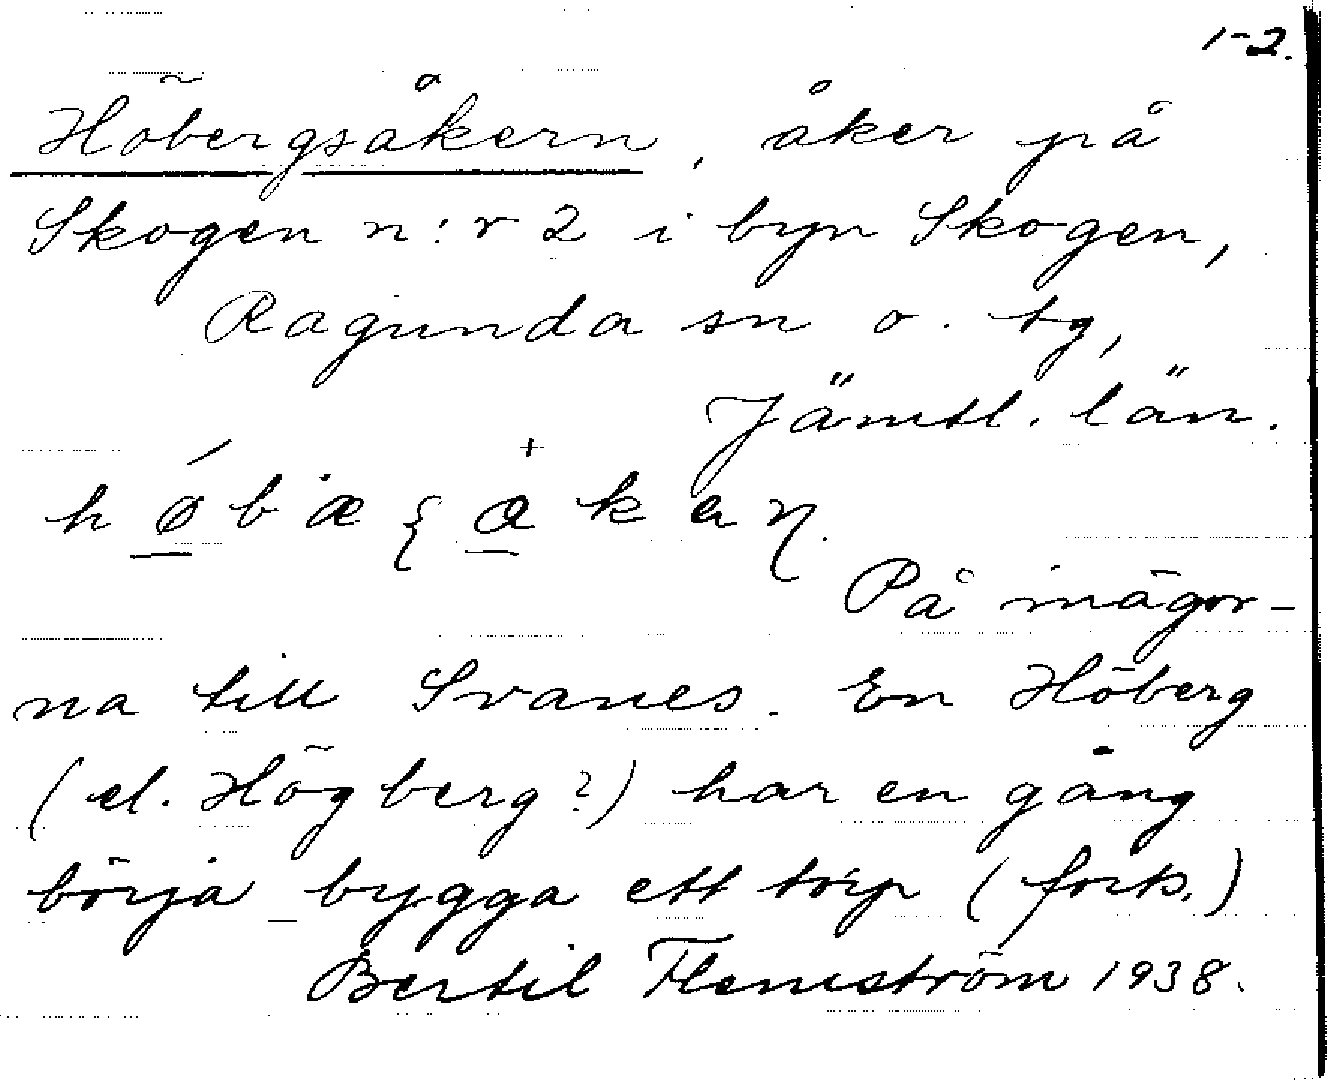 1-2.
Höbergsåkern, åker på
Skogen n:r 2 i byn Skogen,
Ragunda sn o. tg,
Jämtl. län.
På mågor-
na till Svanes. En Höberg
(el. Högberg?) har en gång
börja bygga ett torp (forts.)
Bertil Flemström 1938.